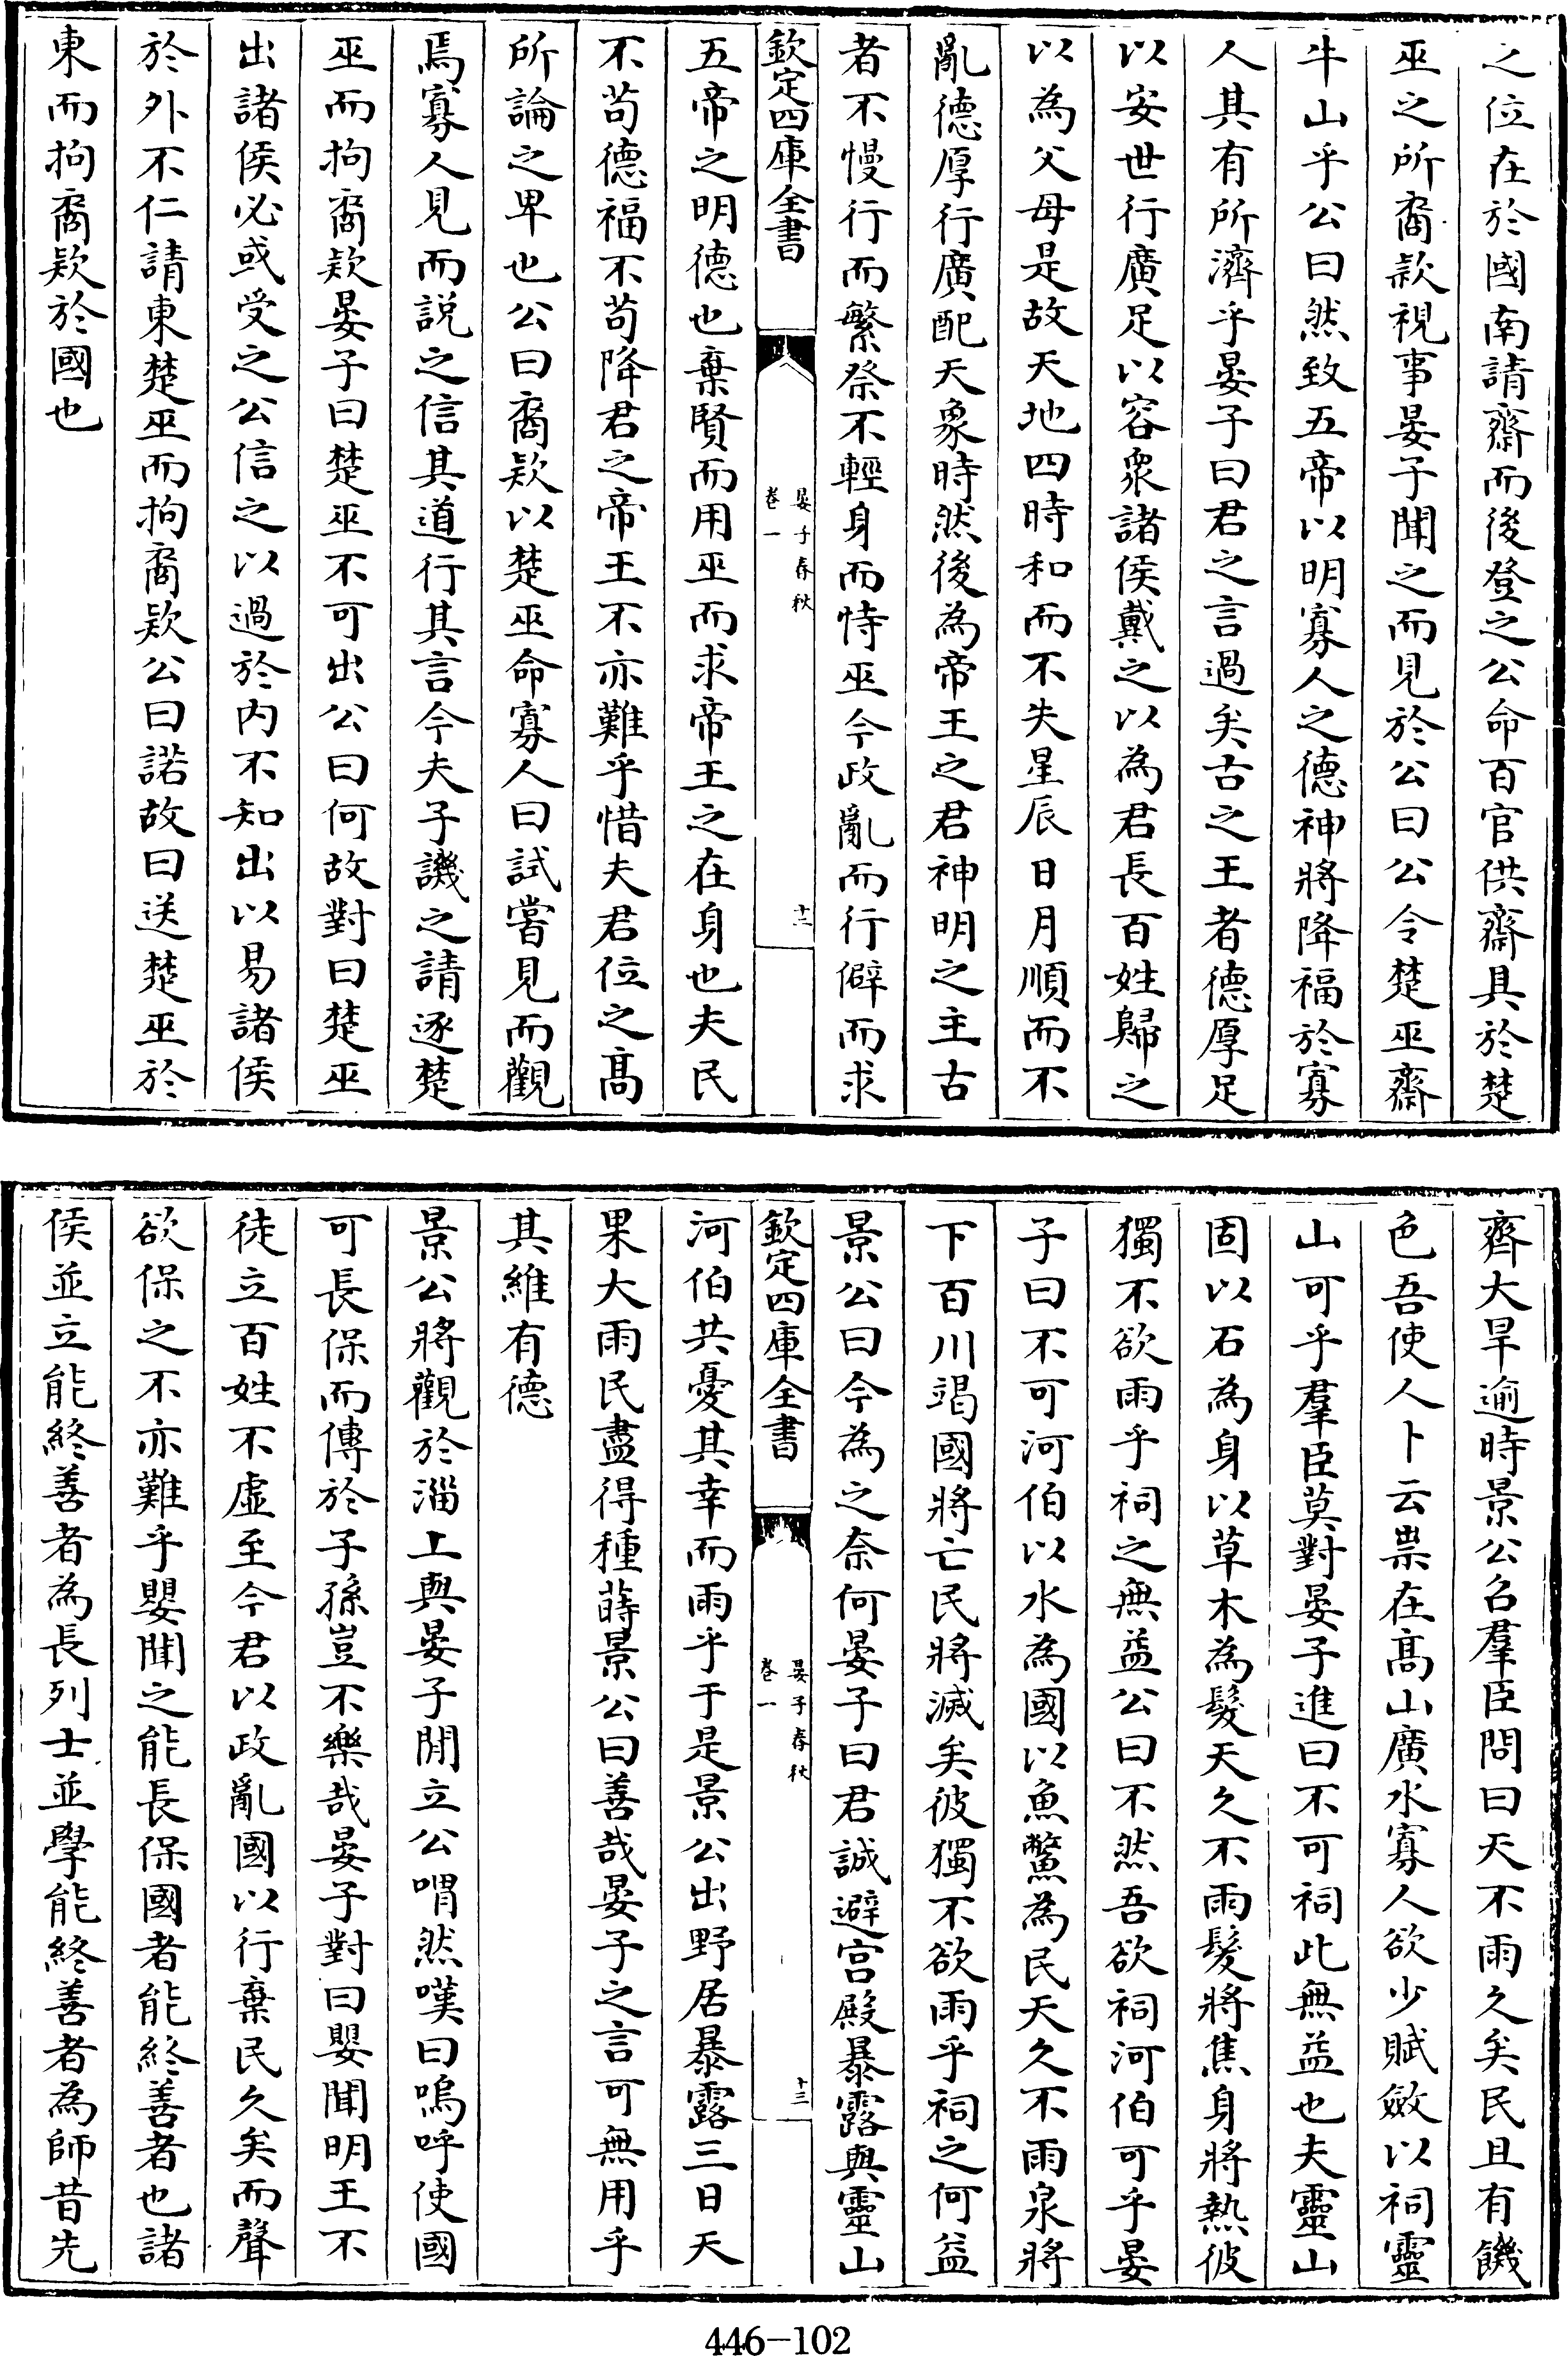 之位在於國南請齋而後登之公命百官供齋具於楚
巫之所裔款視事晏子聞之而見於公曰公令楚巫齋
牛山乎公曰然致五帝以明寡人之德神將降福於寡
人其有所濟乎晏子曰君之言過矣古之王者德厚足
以安世行廣足以容衆諸侯戴之以為君長百姓歸之
以為父母是故天地四時和而不失星辰日月順而不
亂德厚行廣配天象時然後為帝王之君神明之主古
者不慢行而繁祭不輕身而恃巫今政亂而行僻而求
欽定四庫全書
晏子春秋
卷一
十二
五帝之明德也棄賢而用巫而求帝王之在身也夫民
不苟德福不苟降君之帝王不亦難乎惜夫君位之高
所論之卑也公曰裔欵以楚巫命寡人曰試嘗見而觀
焉寡人見而説之信其道行其言今夫子譏之請逐楚
巫而拘裔欵晏子曰楚巫不可出公曰何故對曰楚巫
出諸侯必或受之公信之以過於内不知出以易諸侯
於外不仁請東楚巫而拘裔欵公曰諾故曰送楚巫於
東而拘裔欵於國也
齊大旱逾時景公召羣臣問曰天不雨久矣民且有饑
色吾使人卜云祟在高山廣水寡人欲少賦斂以祠靈
山可乎羣臣莫對晏子進曰不可祠此無益也夫靈山
固以石為身以草木為髮天久不雨髮將焦身將熱彼
獨不欲雨乎祠之無益公曰不然吾欲祠河伯可乎晏
子曰不可河伯以水為國以魚鼈為民天久不雨泉將
下百川竭國將亡民將滅矣彼獨不欲雨乎祠之何益
景公曰今為之奈何晏子曰君誠避宫殿暴露與靈山
欽定四庫全書
晏子春秋
卷一
十三
河伯共憂其幸而雨乎于是景公出野居暴露三日天
果大雨民盡得種蒔景公曰善哉晏子之言可無用乎
其維有德
景公將觀於淄上與晏子閒立公喟然嘆曰嗚呼使國
可長保而傳於子孫豈不樂哉晏子對曰嬰聞明王不
徒立百姓不虛至今君以政亂國以行棄民久矣而聲
欲保之不亦難乎嬰聞之能長保國者能終善者也諸
侯並立能終善者為長列士並學能終善者為師昔先
446-102